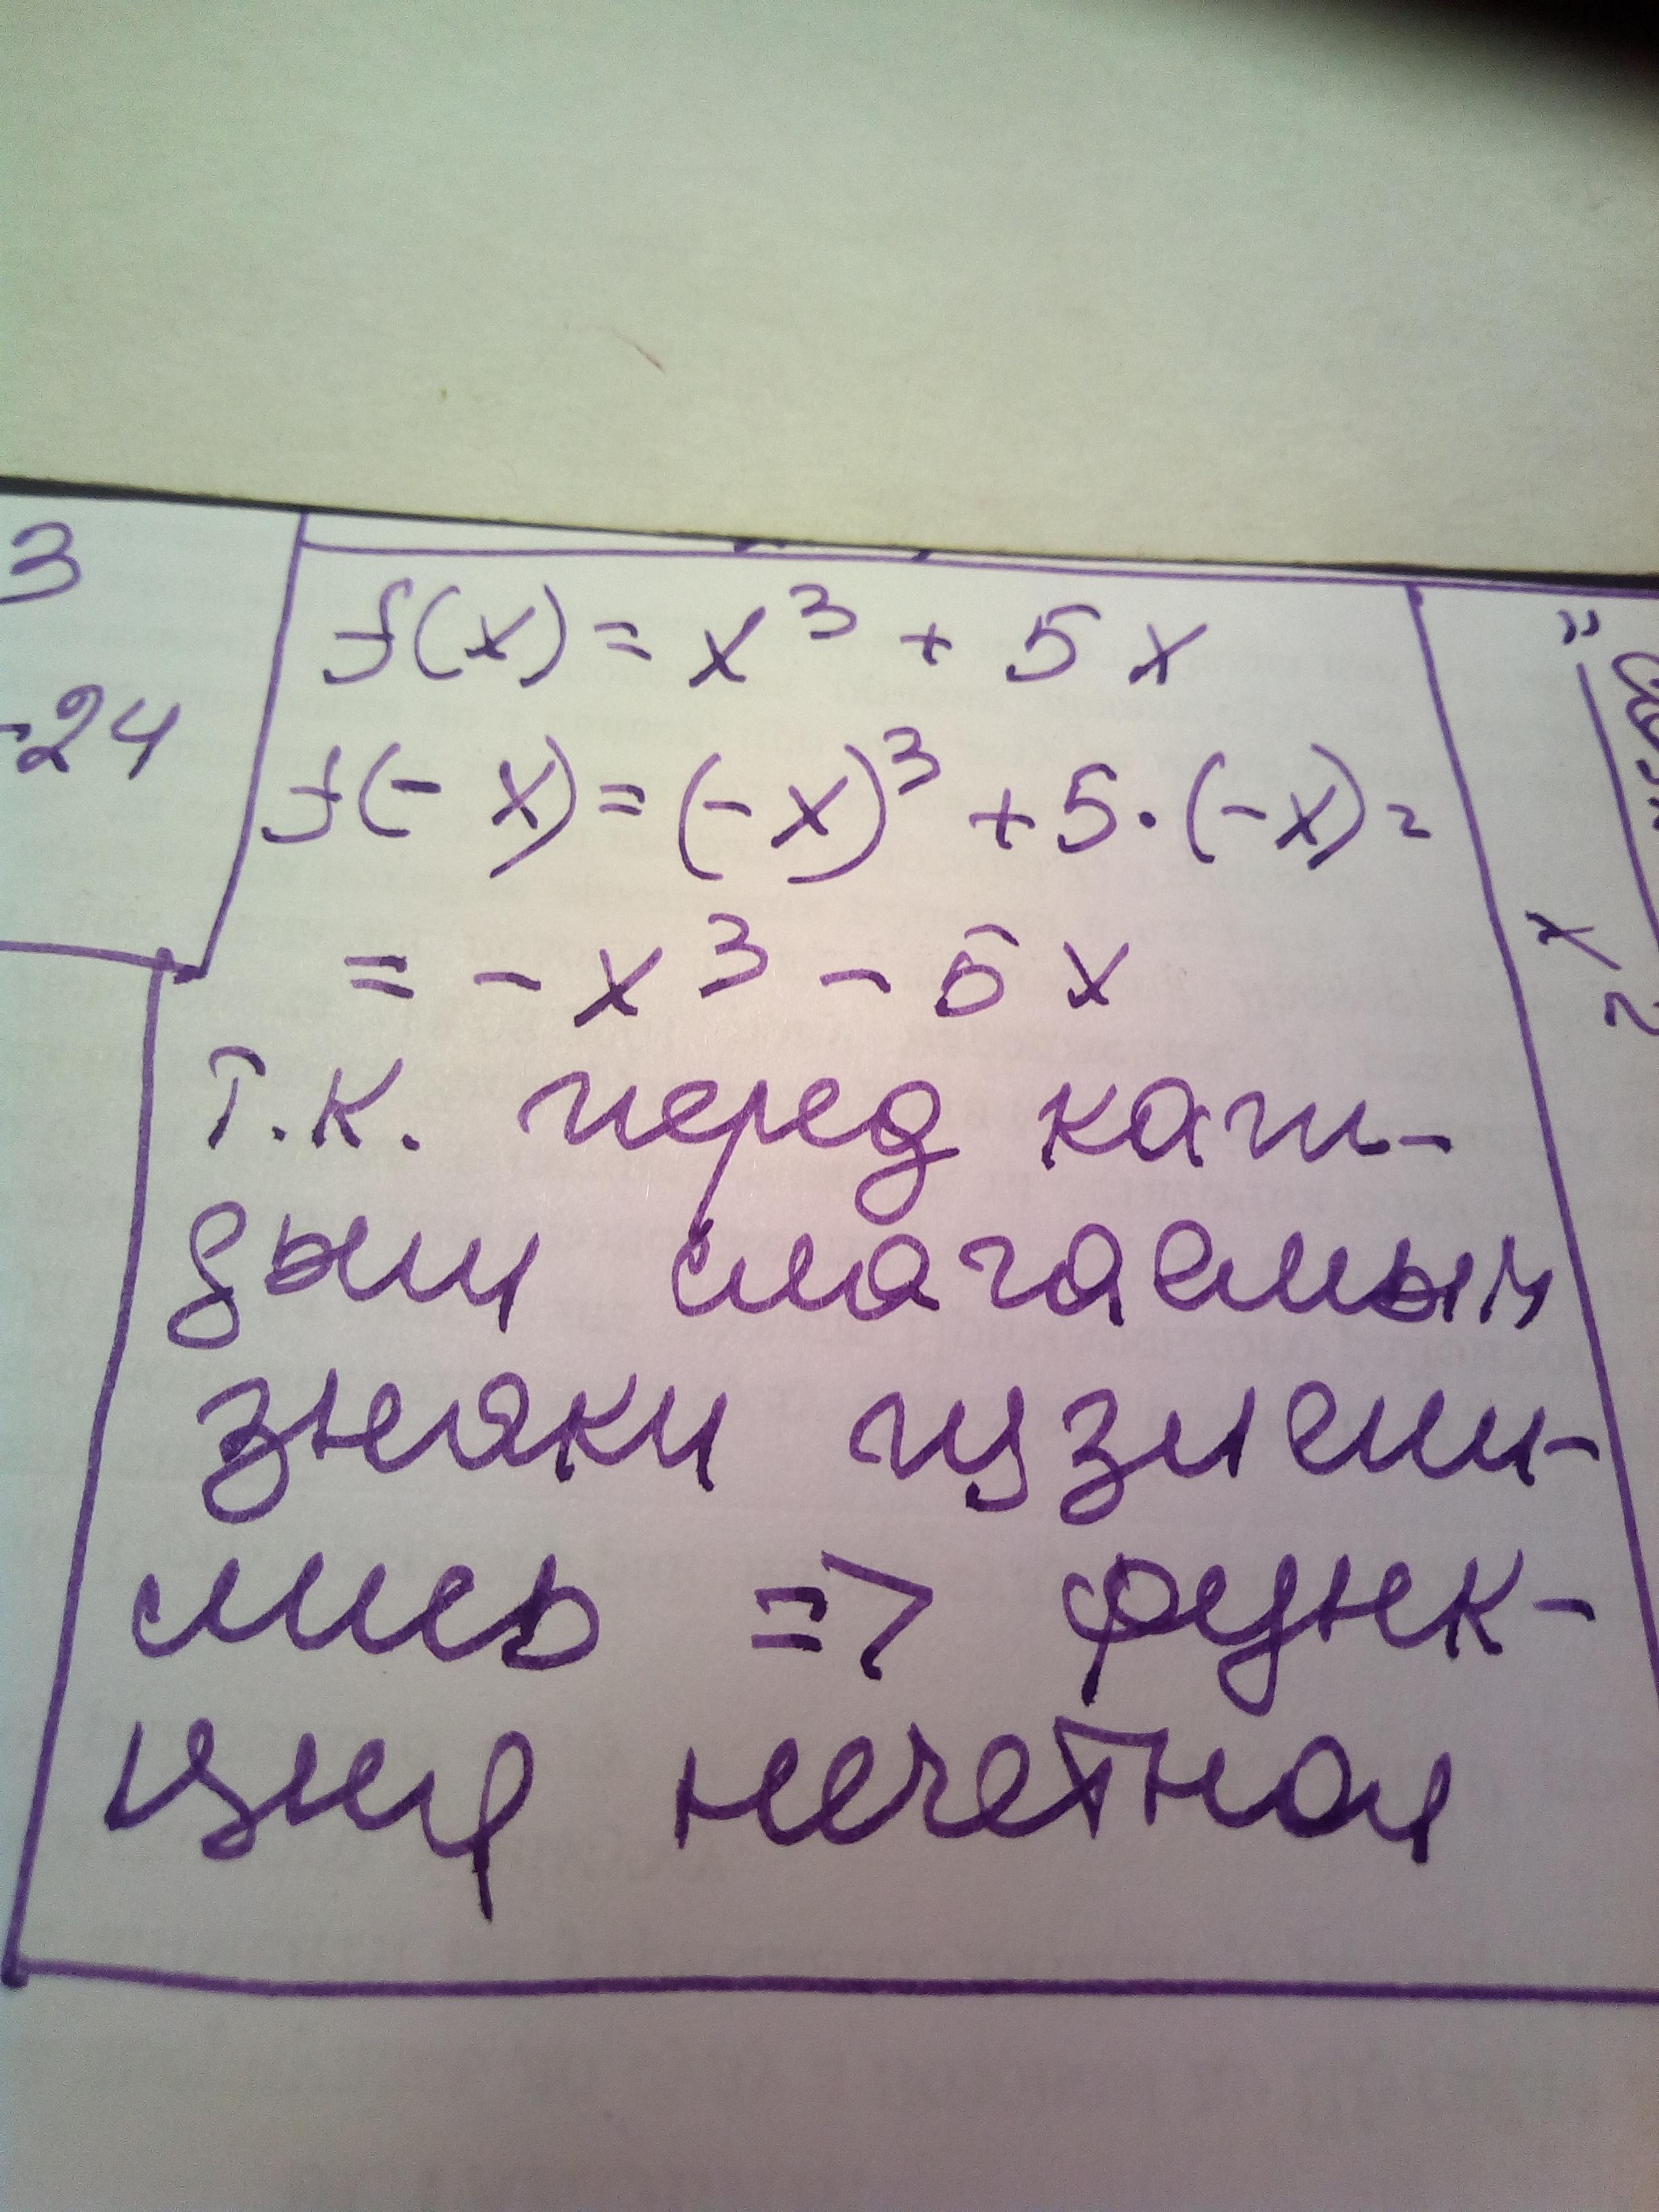 3
-24
f(x) = x³ + 5x
f(-x) = (-x)³ + 5·(-x) =
= -x³ - 5x
т.к. перед каж-
дым слагаемым
знаки изме-
лись => функ-
ция нечетная
x
2